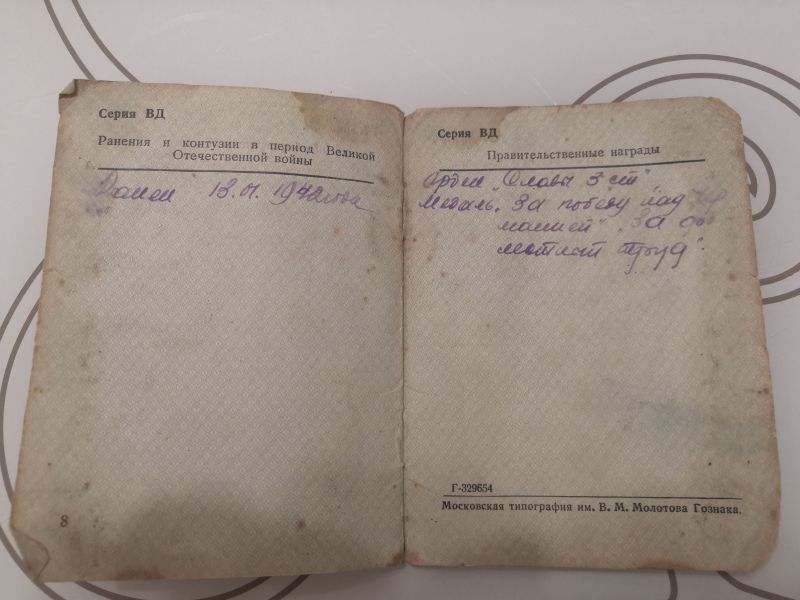 Серия ВД
Ранения и контузии в период Великой
Отечественной войны
Ранен 1942 года
8
Серия ВД
Правительственные награды
Орден „Славы 3 ст"
Медаль. За победу над
манией" „За
труд".
Г-329654
Московская типография им. В. М. Молотова Гознака.